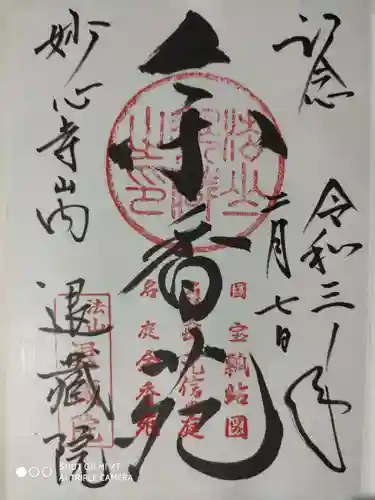 記念
令和三年
二月七日
余香苑
国宝瓢鮎図
元信庭
名庭余香苑
妙心寺山内
退藏院
SHOT ON MI 9T
AI TRIPLE CAMERA